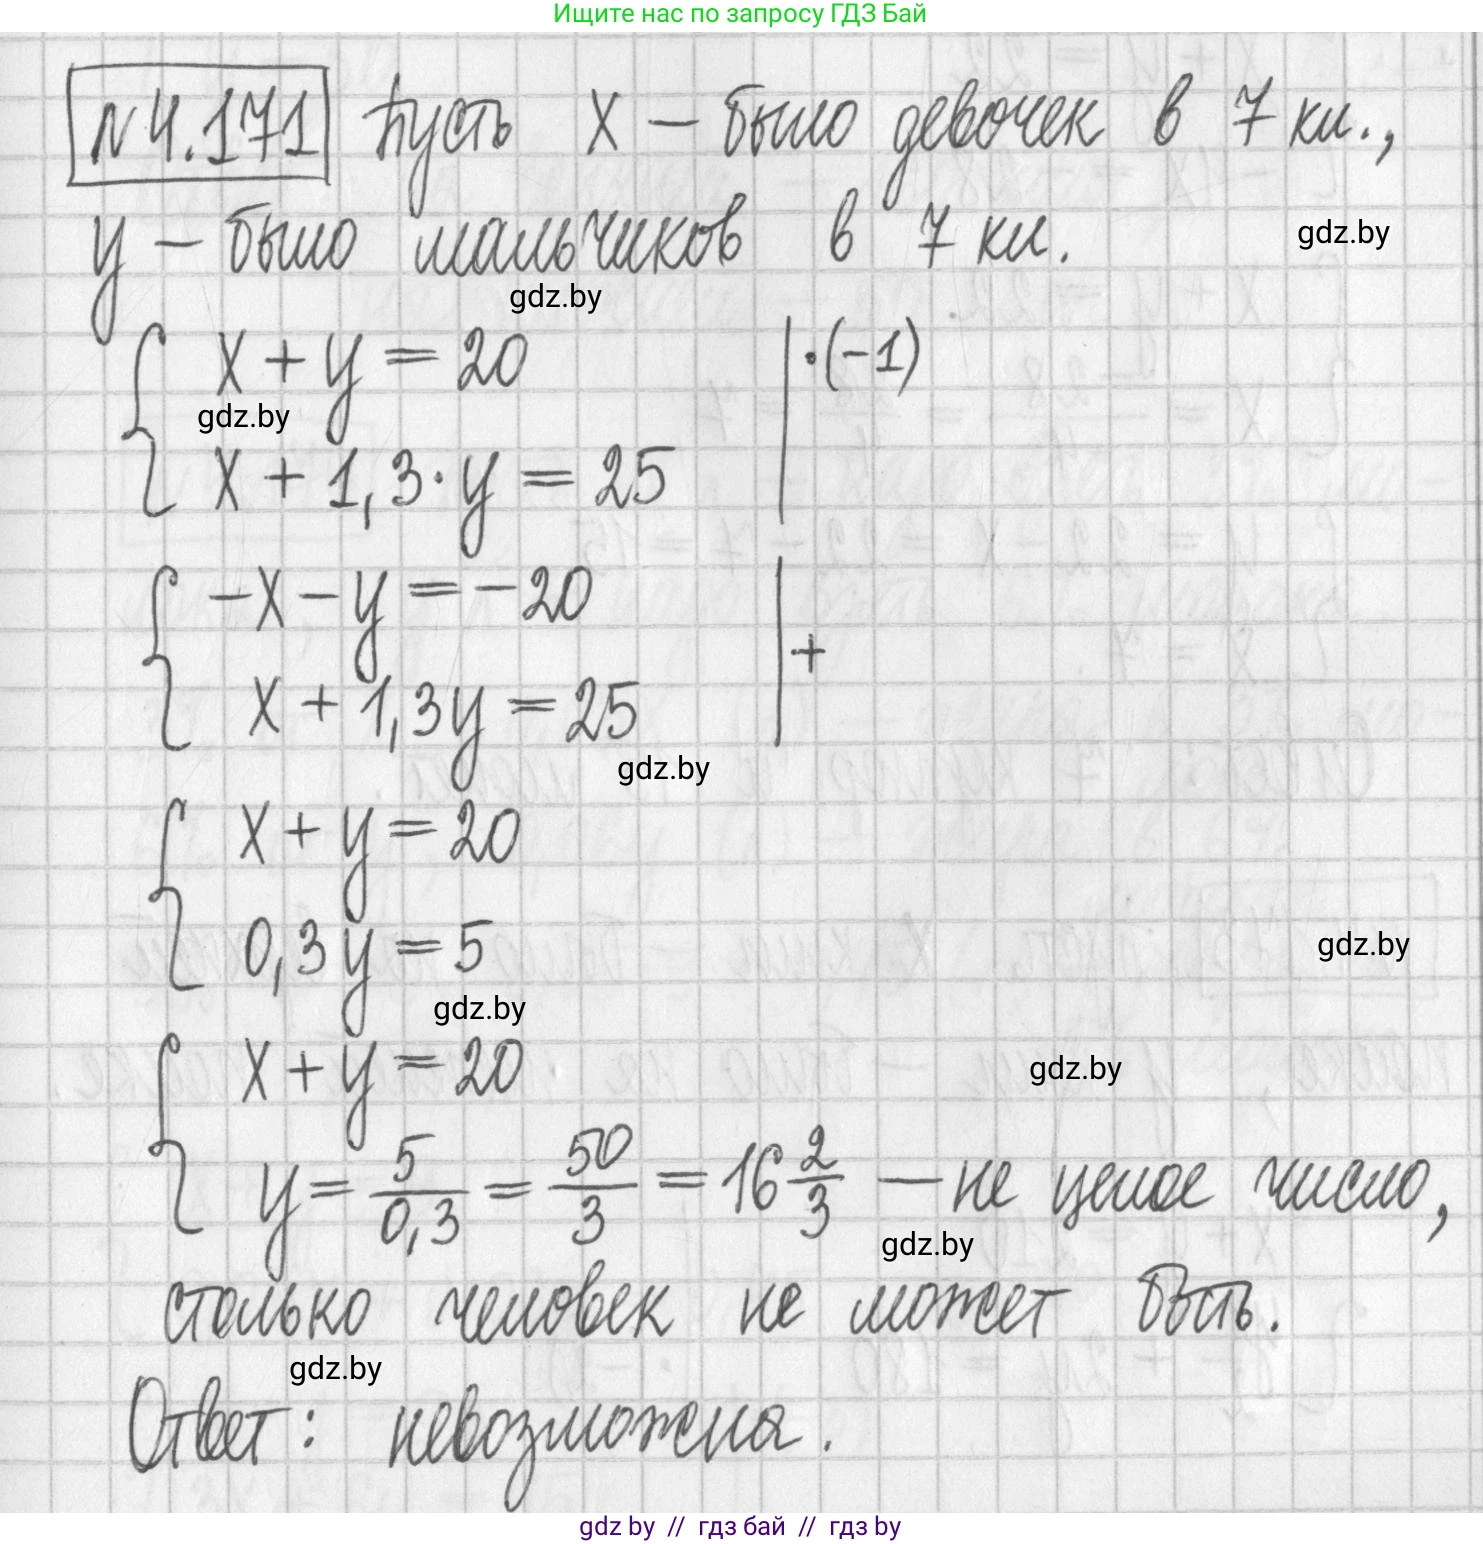 Ищите нас по запросу ГДЗ Бай
N 4.171 Пусть х – было девочек в 7 кл.,
gdz.by
у – было мальчиков в 7 кл.
gdz.by
х + у = 20 | · (-1)
gdz.by
х + 1,3 · у = 25
-х - у = -20 | +
х + 1,3у = 25
gdz.by
х + у = 20
0,3у = 5
gdz.by
gdz.by
х + у = 20
gdz.by
у = 5/0,3 = 50/3 = 16 2/3 – не целое число,
gdz.by
столько человек не может быть.
gdz.by
Ответ: невозможна.
gdz by // гдз бай // гдз by